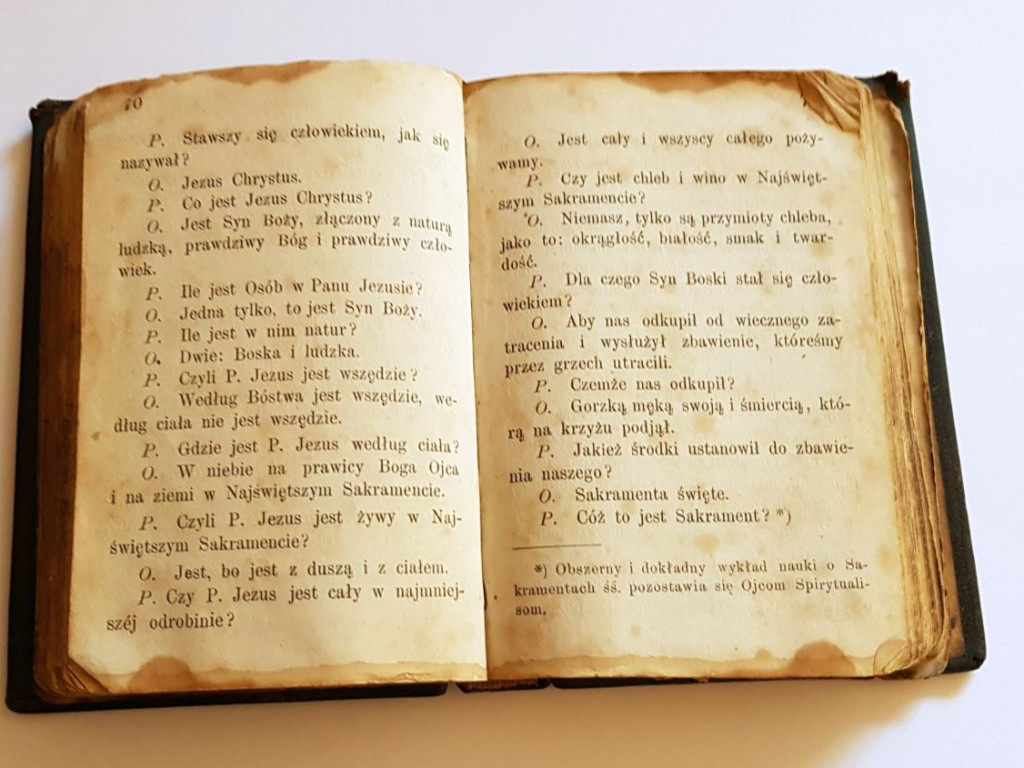 70
P. Stawszy się człowiekiem, jak się
nazywał?
O. Jezus Chrystus.
P. Co jest Jezus Chrystus?
O. Jest Syn Boży, złączony z naturą
ludzką, prawdziwy Bóg i prawdziwy czło-
wiek.
P. Ile jest Osób w Panu Jezusie?
O. Jedna tylko, to jest Syn Boży.
P. Ile jest w nim natur?
O. Dwie: Boska i ludzka.
P. Czyli P. Jezus jest wszędzie?
O. Według Bóstwa jest wszędzie, we-
dług ciała nie jest wszędzie.
P. Gdzie jest P. Jezus według ciała?
O. W niebie na prawicy Boga Ojca
i na ziemi w Najświętszym Sakramencie.
P. Czyli P. Jezus jest żywy w Naj-
świętszym Sakramencie?
O. Jest, bo jest z duszą i z ciałem.
P. Czy P. Jezus jest cały w najmniej-
széj odrobinie?
O. Jest cały i wszyscy całego poży-
wamy.
P. Czy jest chleb i wino w Najświęt-
szym Sakramencie?
O. Niemasz, tylko są przymioty chleba,
jako to: okrągłość, białość, smak i twar-
dość.
P. Dla czego Syn Boski stał się czło-
wiekiem?
O. Aby nas odkupił od wiecznego za-
tracenia i wysłużył zbawienie, któreśmy
przez grzech utracili.
P. Czemże nas odkupił?
O. Gorzką męką swoją i śmiercią, któ-
rą na krzyżu podjął.
P. Jakież środki ustanowił do zbawie-
nia naszego?
O. Sakramenta święte.
P. Cóż to jest Sakrament? *)
*) Obszerny i dokładny wykład nauki o Sa-
kramentach śś. pozostawia się Ojcom Spirytuali-
som.